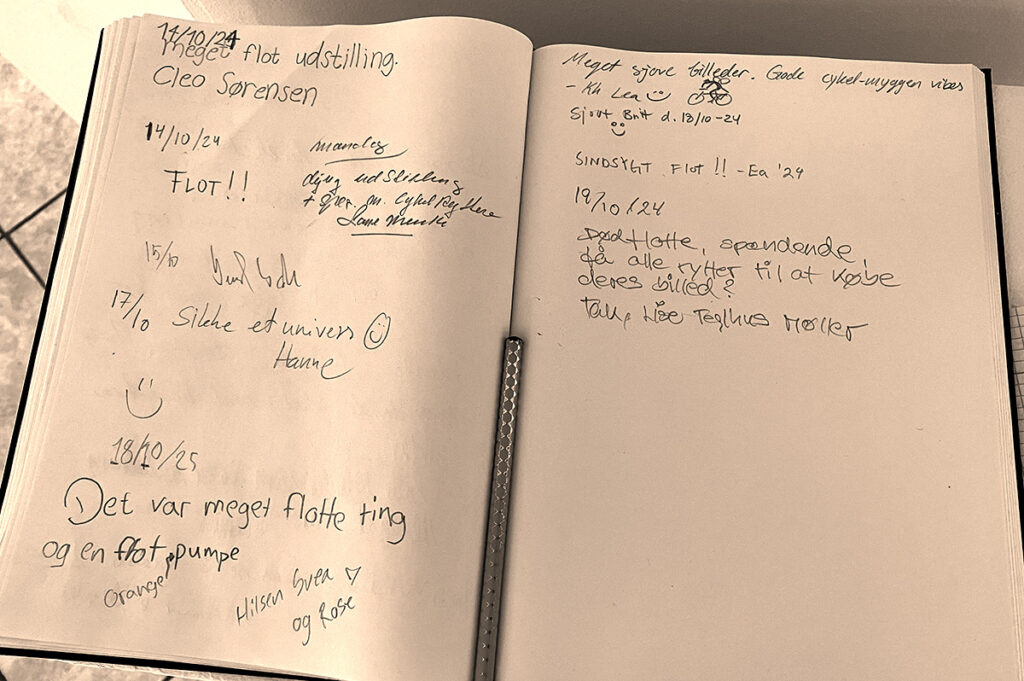 14/10/24
Meget flot udstilling.
Cleo Sørensen
14/10/24
FLOT!!
mandag
udstilling
+
15/10
17/10 Sikke et univers
Hanne
18/10/25
Det var meget flotte ting
og en flot pumpe
orange
Hilsen Svea
og Rose
Meget sjove billeder. Gode cykel-myggen vibes
- Kh Lea
Sjovt Britt d. 18/10-24
SINDSYGT FLOT !! - Ea '24
19/10/24
flotte, spændende
få alle rytter til at købe
deres billed?
Tak, Lise Teglhus Møller